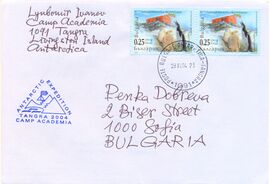 Lyubomir Ivanov
Camp Academia
1091 Tangra
Livingston Island
Antarctica
0.25
0.25
ANTARCTIC EXPEDITION
TANGRA 2004
CAMP ACADEMIA
Penka Dobreva
2 Biser Street
1000 Sofia
BULGARIA